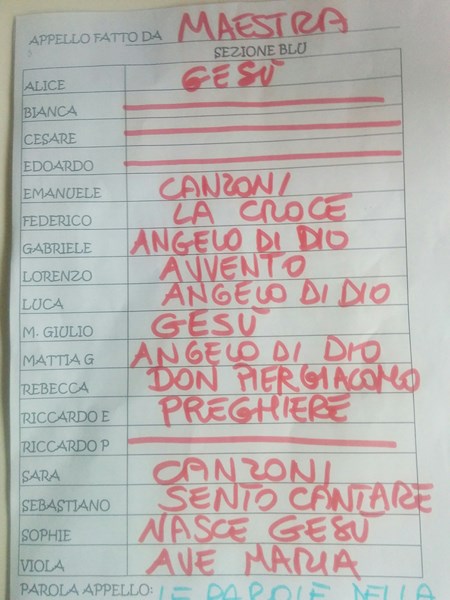 APPELLO FATTO DA MAESTRA
SEZIONE BLU
ALICE GESÙ
BIANCA
CESARE
EDOARDO
EMANUELE CANZONI
FEDERICO LA CROCE
GABRIELE ANGELO DI DIO
LORENZO AVVENTO
LUCA ANGELO DI DIO
M. GIULIO GESÙ
MATTIA G ANGELO DI DIO
REBECCA DON PIERGIACOMO
RICCARDO E PREGHIERE
RICCARDO P
SARA CANZONI
SEBASTIANO SENTO CANTARE
SOPHIE NASCE GESÙ
VIOLA AVE MARIA
PAROLA APPELLO: LE PAROLE DELLA